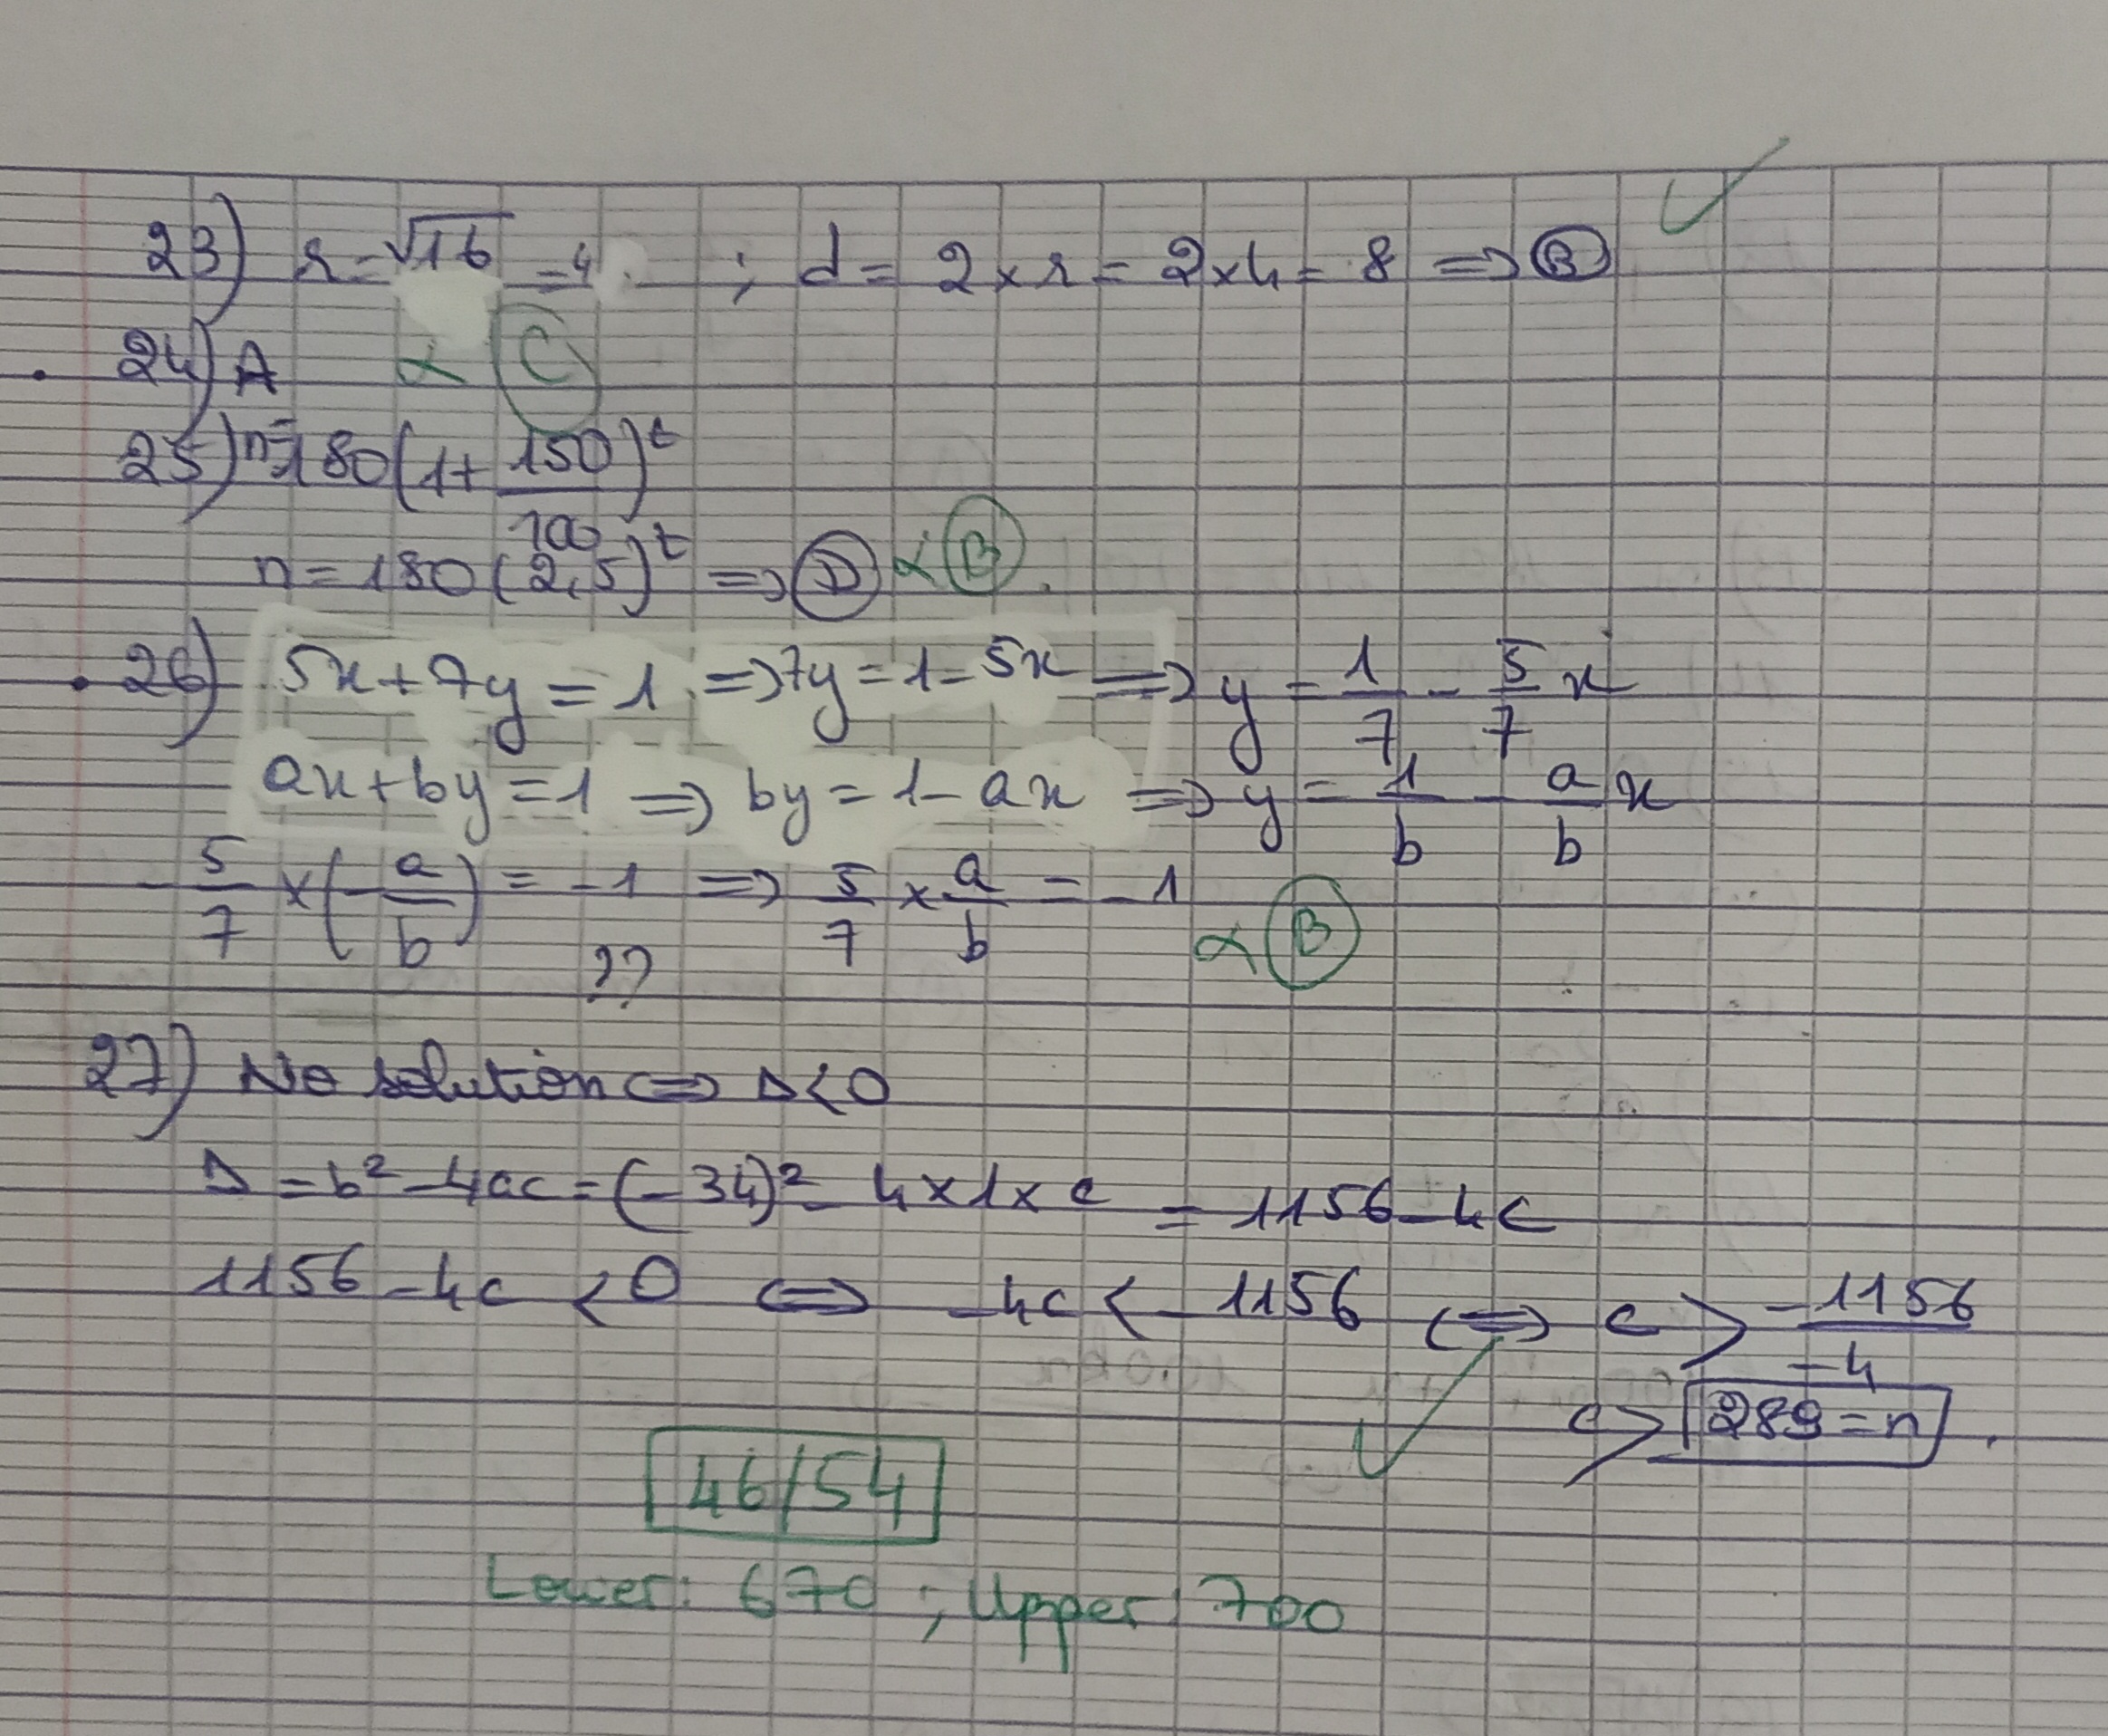 23) r = √16 = 4 ; d = 2 × r = 2 × 4 = 8 ⇒ Ⓑ ✓
24) A ∝ Ⓒ
25) n = 180(1 + 150/100)^t
n = 180(2,5)^t ⇒ Ⓓ ∝ Ⓑ.
26) 5x + 7y = 1 ⇒ 7y = 1 - 5x ⇒ y = 1/7 - 5/7 x
ax + by = 1 ⇒ by = 1 - ax ⇒ y = 1/b - a/b x
-5/7 × (-a/b) = -1 ⇒ 5/7 × a/b = -1
?? ∝ Ⓑ
27) No solution ⇔ Δ < 0
Δ = b² - 4ac = (-34)² - 4 × 1 × c = 1156 - 4c
1156 - 4c < 0 ⇔ -4c < -1156 ⇔ c > -1156/-4
✓ c > 289 = n.
46/54
Lower: 670 ; Upper: 700